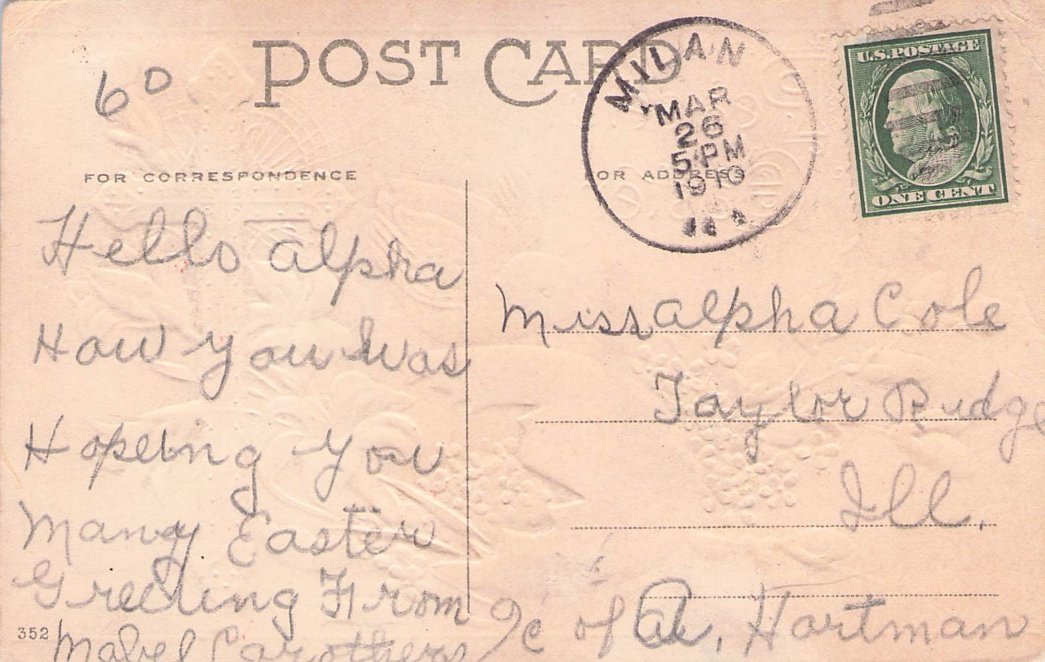 60
POST CARD
MILAN
MAR
26
5-PM
1910
U.S. POSTAGE
ONE CENT
FOR CORRESPONDENCE
OR ADDRESS
Hello Alpha
How you was
Hopeing you
Many Easter
Greeting From
Mabel Carothers
Miss Alpha Cole
Taylor Ridge
Ill.
℅ of A. Hartman
352